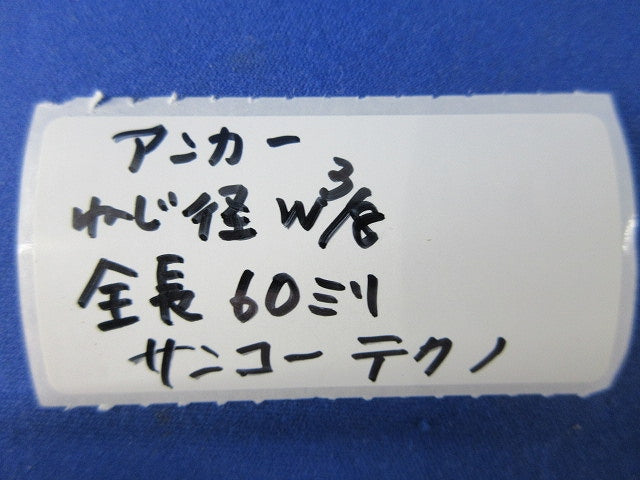 アンカー
ねじ径 W3/8
全長 60ミリ
サンコーテクノ